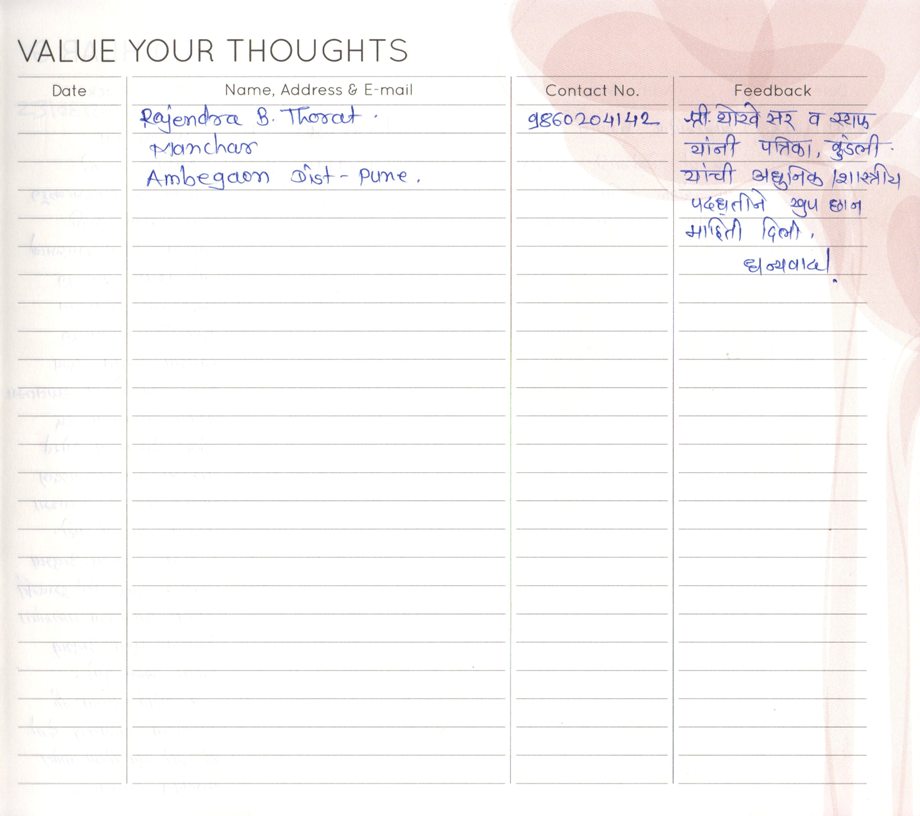 VALUE YOUR THOUGHTS
Date Name, Address & E-mail Contact No. Feedback
Rajendra B. Thorat. 9860204142 श्री. थोरवे सर व स्टाफ
Manchar यांनी पत्रिका, कुंडली.
Ambegaon Dist - Pune. यांची अधुनिक /शास्त्रीय
पदधतीने खुप छान
माहिती दिली.
धन्यवाद!